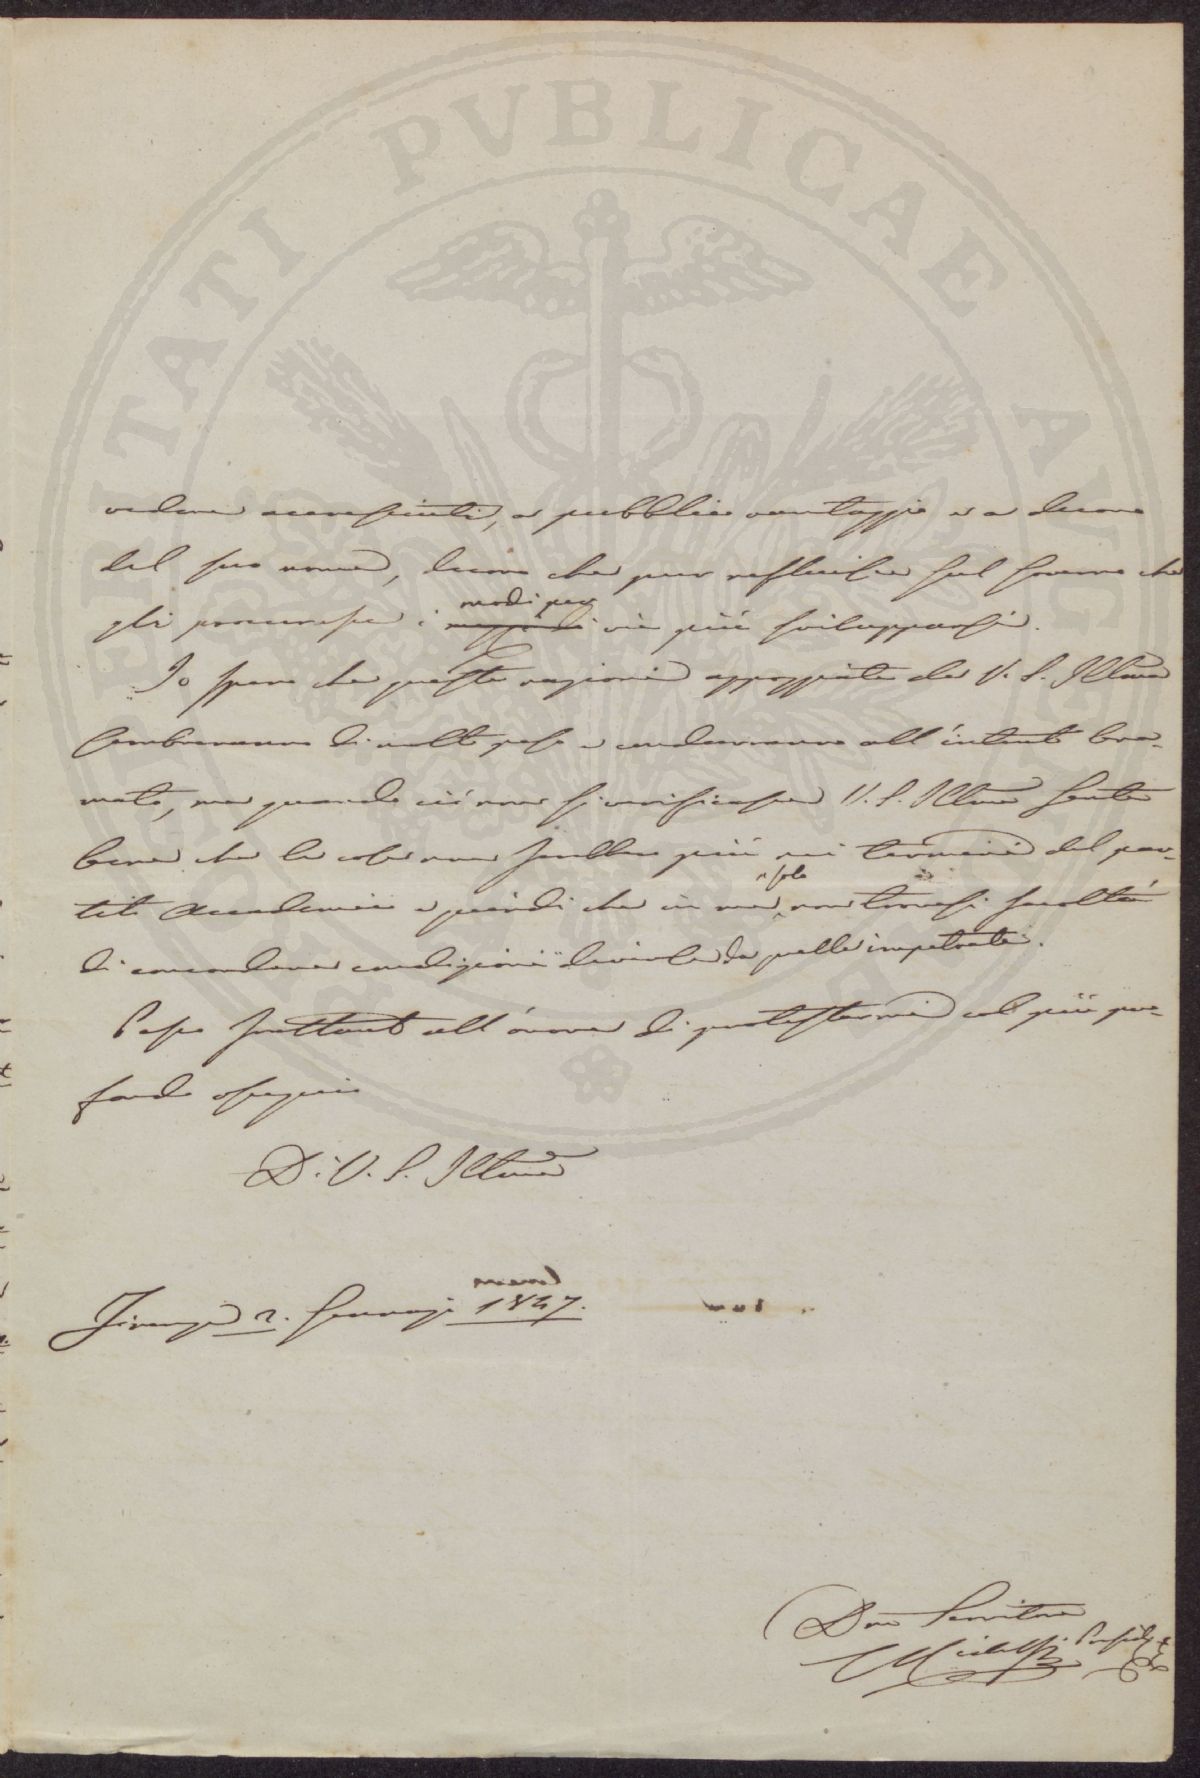 PROSPERITATI PVBLICAE AVGENDAE
vedere accresciuti, a pubblico vantaggio e a decoro
del suo nome, decoro che pur refluisce sul Governo che
gli procurasse i modi per vie più svilupparsi.
Io spero che queste ragioni appoggiate da V. S. Illma
sembreranno di molto peso e condurranno all'intento bra-
mato, ma quando ciò non si verificasse V. S. Illma sente
bene che la cosa non sarebbe più nei termini del par-
tito Accademico e quindi che in me solo non trovasi facoltà
di concordare condizioni diverse da quelle impetrate.
Passo frattanto all'onore di protestarmi col più pro-
fondo ossequio
Di V. S. Illma
Firenze 2. Gennajo 1847.
Dmo Servitore